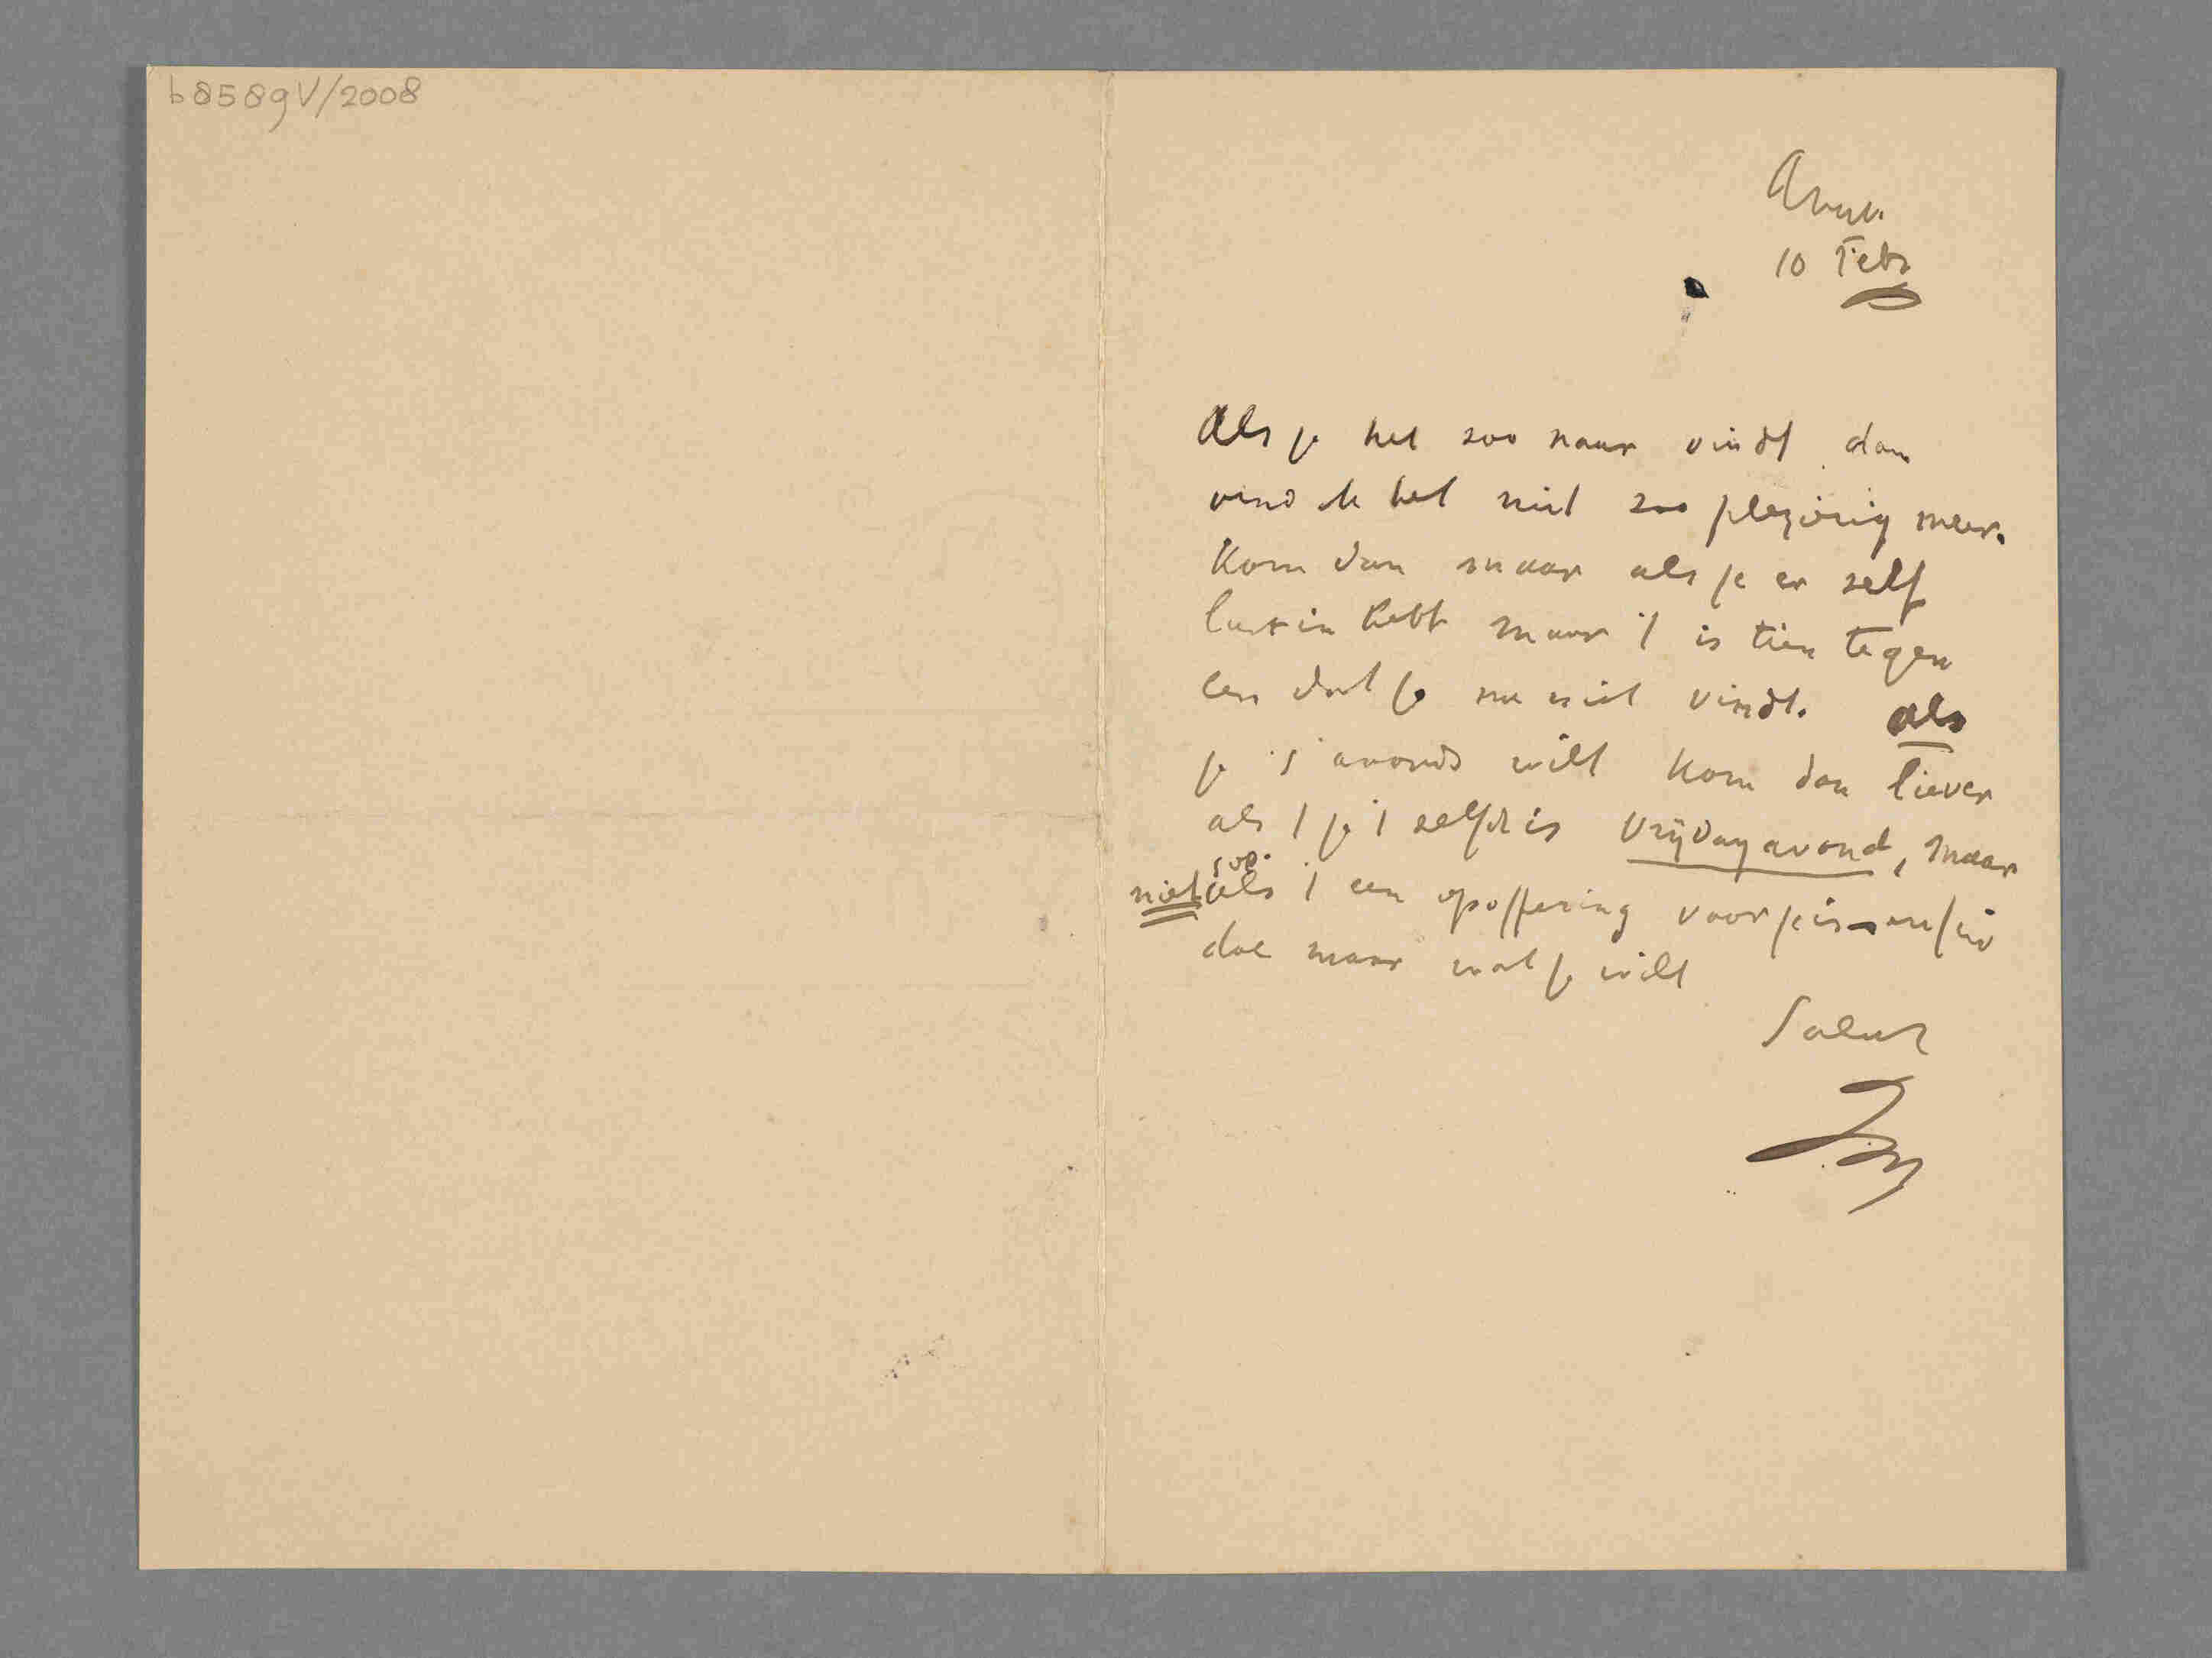 b8589V/2008
10 Febr
Als je het zoo naar vindt dan
vind ik het niet zoo plezierig meer.
Kom dan maar als je er zelf
lust in hebt maar 't is tien tegen
een dat je me niet vindt. als
je 's avonds wilt kom dan liever
als 't je 't zelfde is Vrijdag avond, maar
niet als 't een opoffering voor je is
doe maar wat je wilt
Salut